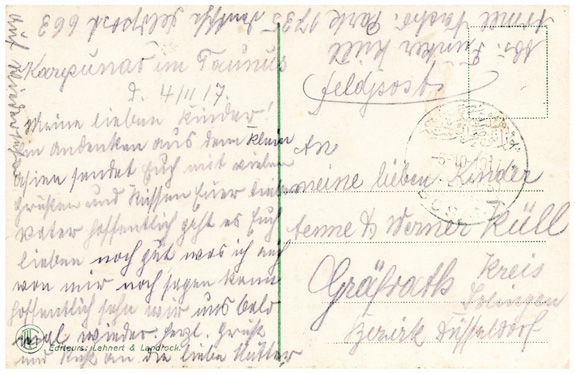 Karpunar im Taurus
d. 4/11 17.
Meine lieben Kinder!
Ein Andenken aus dem klein
Asien sendet Euch mit vielen
Grüßen und Küssen Euer lieber
Vater hoffentlich geht es Euch
lieben noch gut was ich auch
von mir noch sagen kann
hoffentlich sehn wir uns bald
mal wieder. Herzl. Gruß
und Kuß an die liebe Mutter
Auf Wiedersehn
Editeurs: Lehnert & Landrock.
Feldpost
An
meine lieben Kinder
Aenne & Werner Küll
Gräfrath Kreis
Solingen
Bezirk Düsseldorf
Küll
deutsche Feldpost 663